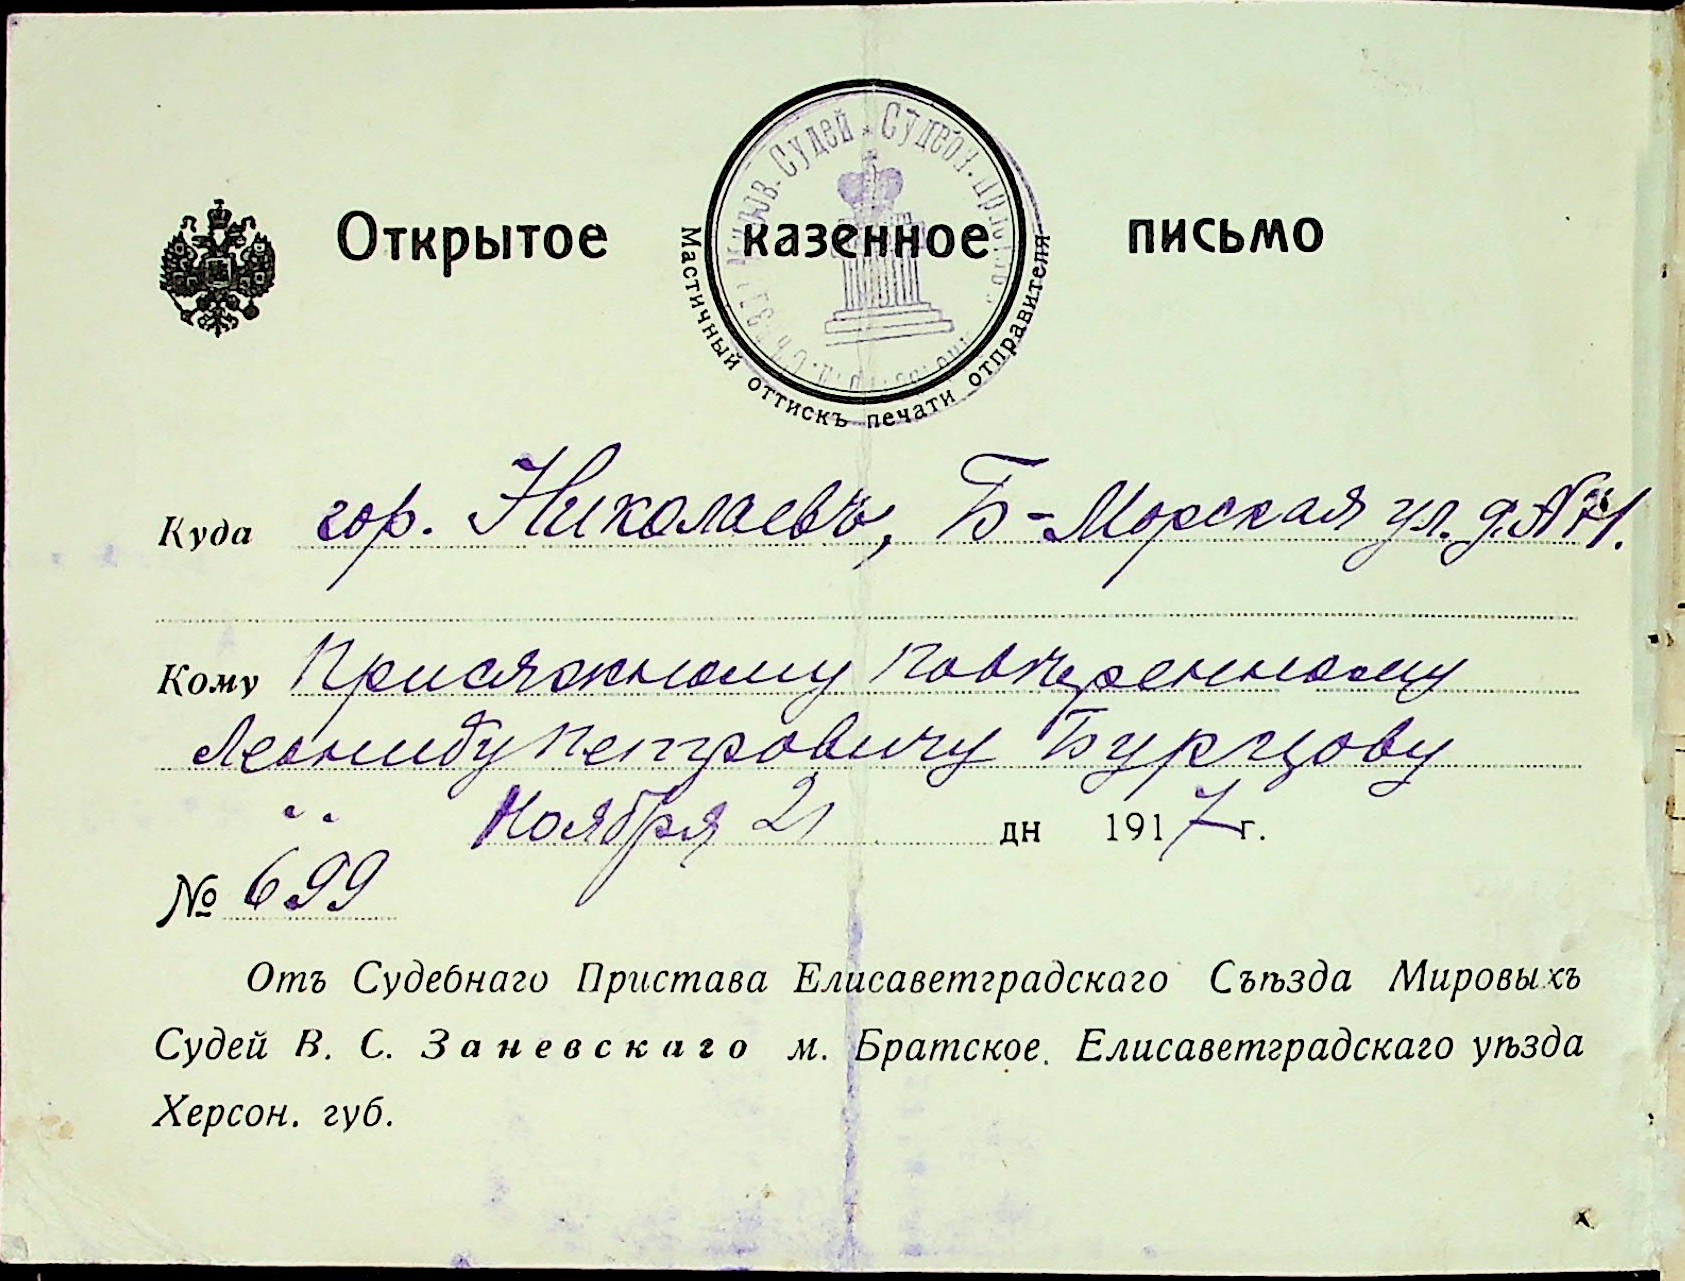 Открытое казенное письмо
Миров. Судей Судебн.
Мастичный оттискъ печати отправителя
Куда гор. Николаевъ, Б-Морская ул. д. №
Кому Присяжному Повѣренному
Леониду Петровичу Бурцову
" " Ноября 21 дн 1917 г.
№ 699
Отъ Судебнаго Пристава Елисаветградскаго Съѣзда Мировыхъ
Судей В. С. Заневскаго м. Братское, Елисаветградскаго уѣзда
Херсон. губ.